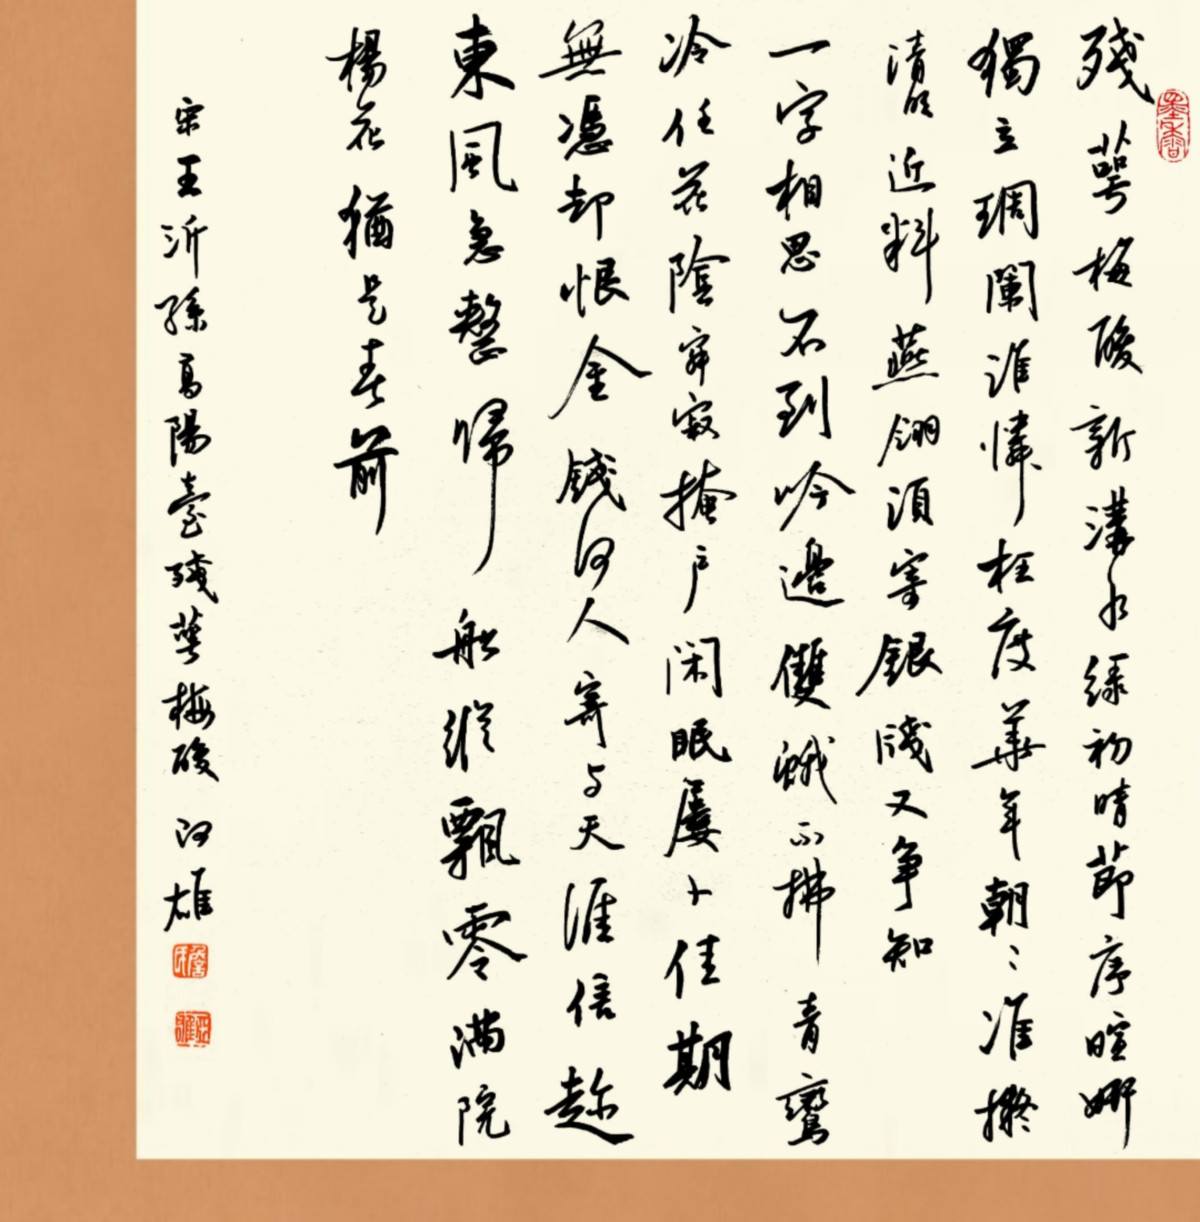 墨香
殘萼梅酸新溝水綠初晴節序暄妍
獨立琱闌誰憐枉度華年朝〻准擬
清明近料燕翎須寄銀牋又爭知
一字相思不到吟邊雙蛾不拂青鸞
冷任花陰寂寂掩戶闲眠屢卜佳期
無憑却恨金錢何人寄与天涯信趁
東風急整歸船縱飄零滿院
楊花猶是春前
宋王沂孫高陽臺殘萼梅酸 雄